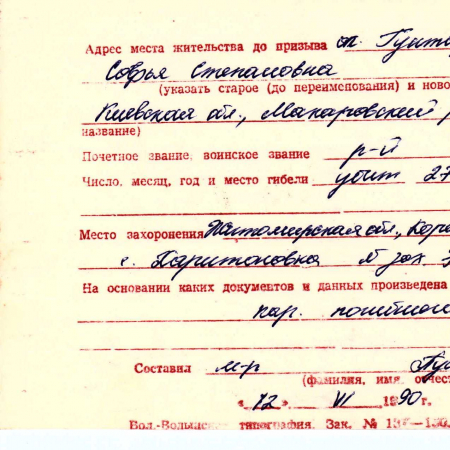 Адрес места жительства до призыва
Софья Степановна
(указать старое (до переименования) и ново
Киевская обл., Макаровский р
название)
Почетное звание, воинское звание р-й
Число, месяц, год и место гибели убит 27
Место захоронения Житомирская обл., Кор
с. Харитоновка
На основании каких документов и данных произведена
кар. погибшего
Составил м-р
(фамилия, имя, отчес
«12» VI 1990 г.
Вол.-Волынская типография. Зак. №